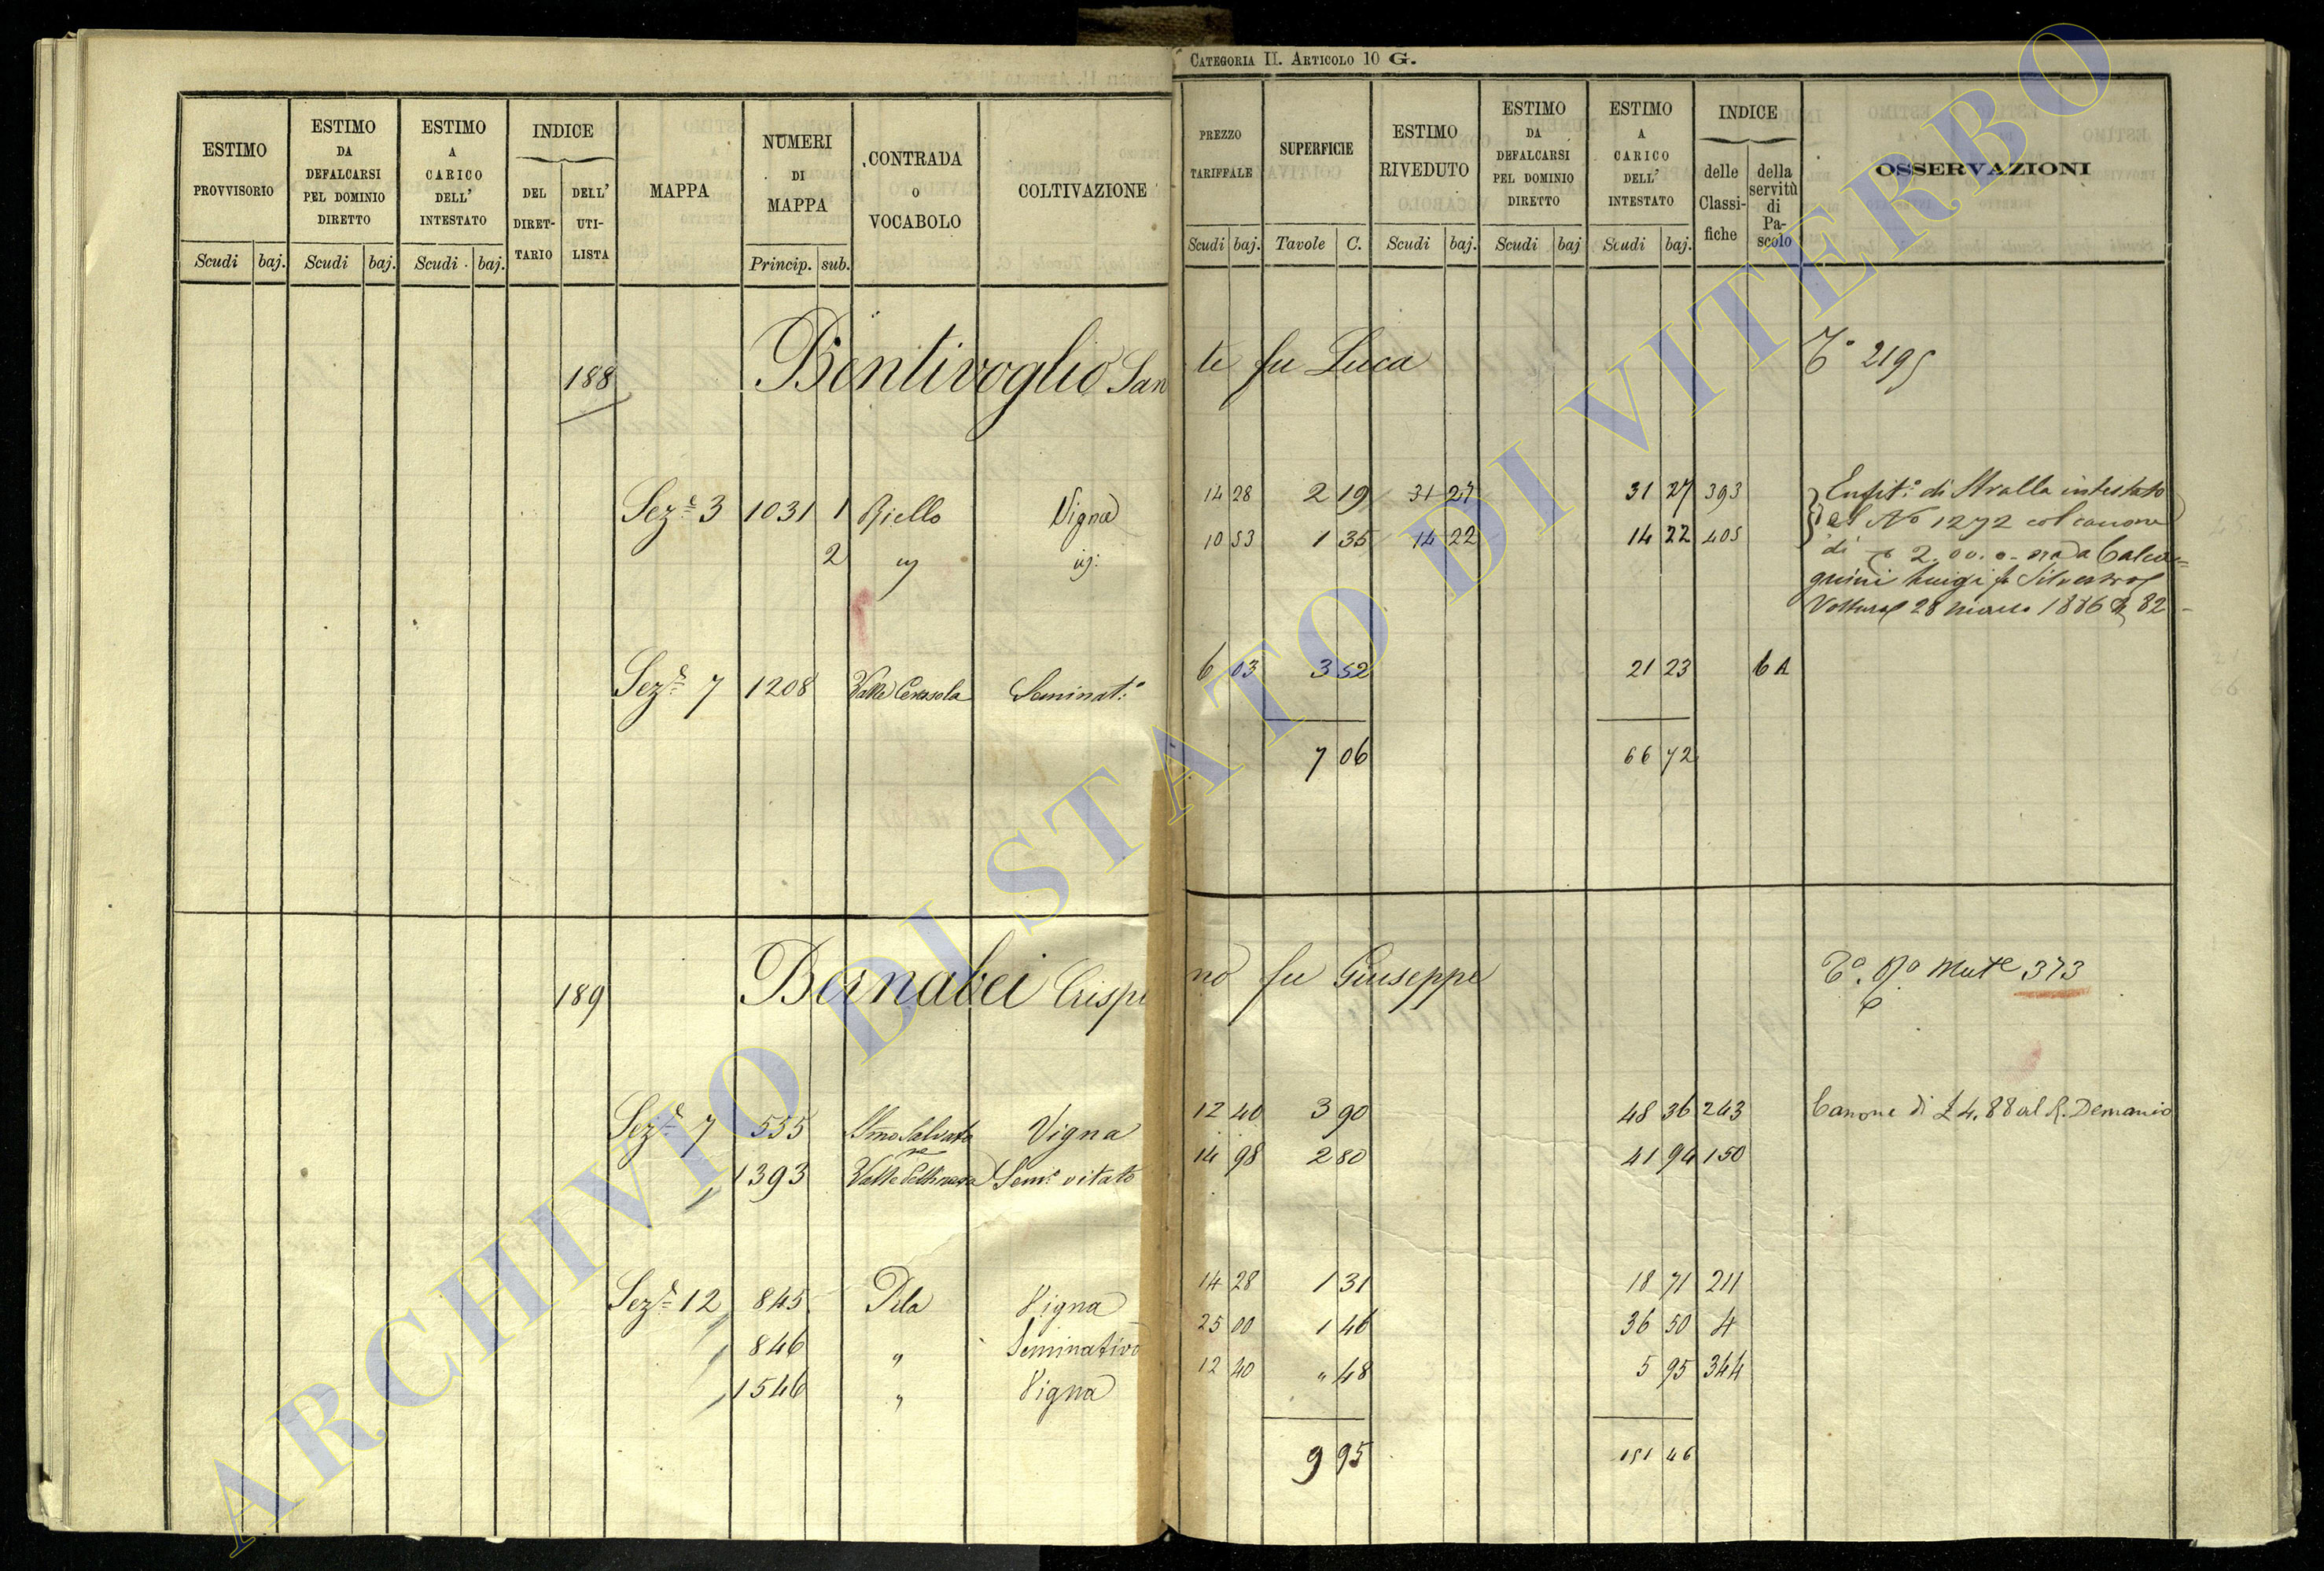 CATEGORIA II. ARTICOLO 10 G.
ESTIMO PROVVISORIO
Scudi baj.
ESTIMO DA DEFALCARSI PEL DOMINIO DIRETTO
Scudi baj.
ESTIMO A CARICO DELL' INTESTATO
Scudi baj.
INDICE
DEL DIRETTARIO
DELL' UTILISTA
MAPPA
NUMERI DI MAPPA
Princip. sub.
CONTRADA O VOCABOLO
COLTIVAZIONE
PREZZO TARIFFALE
Scudi baj.
SUPERFICIE
Tavole C.
ESTIMO RIVEDUTO
Scudi baj.
ESTIMO DA DEFALCARSI PEL DOMINIO DIRETTO
Scudi baj
ESTIMO A CARICO DELL' INTESTATO
Scudi baj.
INDICE
delle Classifiche
della servitù di Pascolo
OSSERVAZIONI
188 Bentivoglio Sante fu Luca Tº 2195
Sezᵉ 3 1031 1 Riello Vigna 14 28 2 19 31 27 31 27 393
2 " id: 10 53 1 35 14 22 14 22 405
Enfit.ª di Stralla intestato
al Nº 1272 col canone
di 2.00.
Luigi fu Silvestro
Voltura 28 marzo 1886 82
Sezᵉ 7 1208 Valle Cerasola Seminatº 6 03 3 52 21 23 6 A
7 06 66 72
189 Bernabei Crispino fu Giuseppe Tº. Pº Mutᵉ 373
Sezᵉ 7 535 Smo Salvatore Vigna 12 40 3 90 48 36 243 Canone di £ 4,88 al R. Demanio
1393 Valle Semº vitato 14 98 2 80 41 94 150
Sezᵉ 12 845 Pila Vigna 14 28 1 31 18 71 211
846 " Seminativo 25 00 1 46 36 50 4
1546 " Vigna 12 40 " 48 5 95 344
9 95 151 46
ARCHIVIO DI STATO DI VITERBO